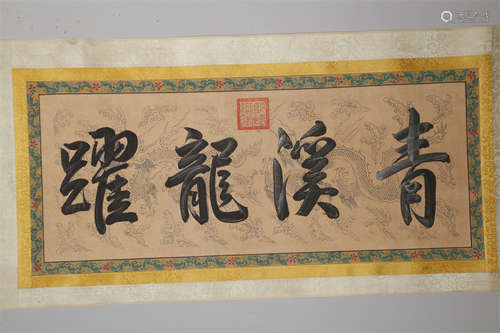 青溪龍躍